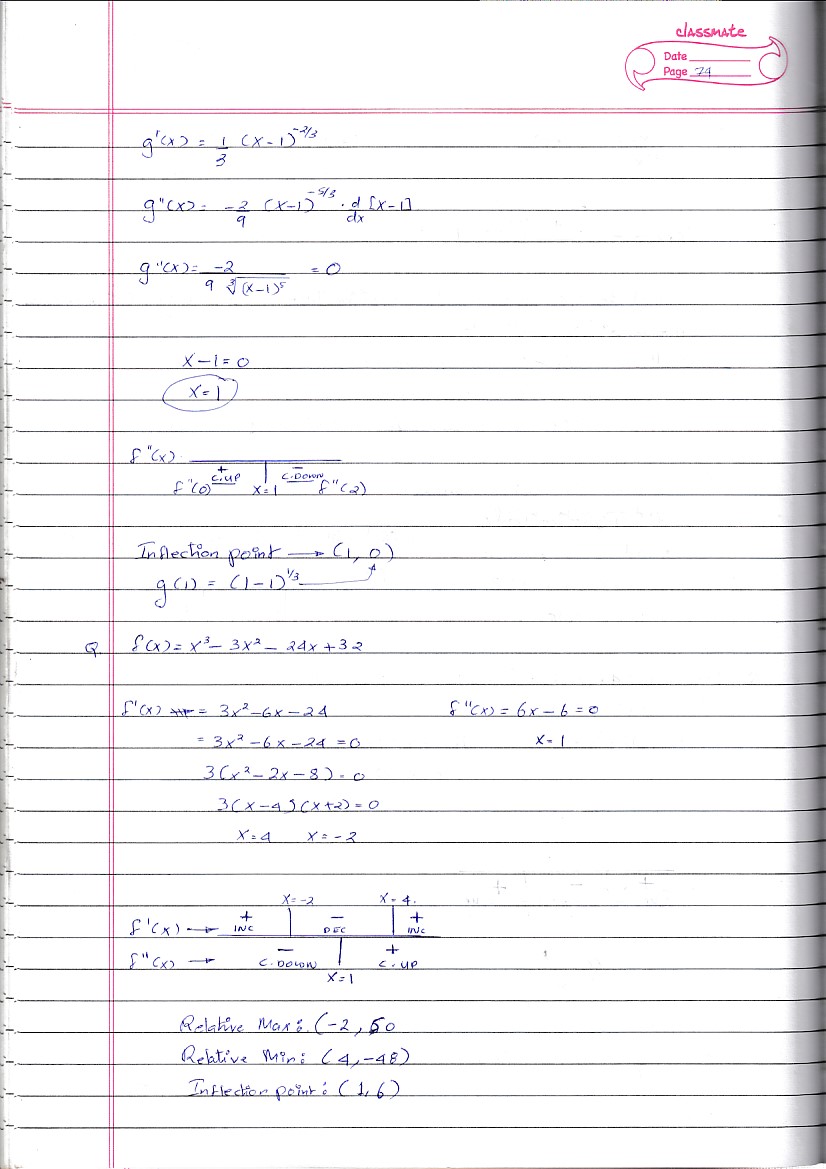 classmate
Date
Page 74
g'(x) = 1/3 (x-1)^-2/3
g"(x) = -2/9 (x-1)^-5/3 · d/dx [x-1]
g"(x) = -2/9 ∛(x-1)^5 = 0
x-1=0
x=1
f"(x)
+ -
C.UP C.DOWN
f"(0) x=1 f"(2)
Inflection point → (1, 0)
g(1) = (1-1)^1/3
Q. f(x) = x³ - 3x² - 24x + 32
f'(x) = 3x² - 6x - 24 f"(x) = 6x - 6 = 0
= 3x² - 6x - 24 = 0 x = 1
3(x² - 2x - 8) = 0
3(x-4)(x+2) = 0
x=4 x=-2
x=-2 x=4
+ - +
f'(x) → INC DEC INC
- +
f"(x) → C.DOWN C.UP
x=1
Relative Max: (-2, 60
Relative Min: (4, -48)
Inflection point: (1, 6)